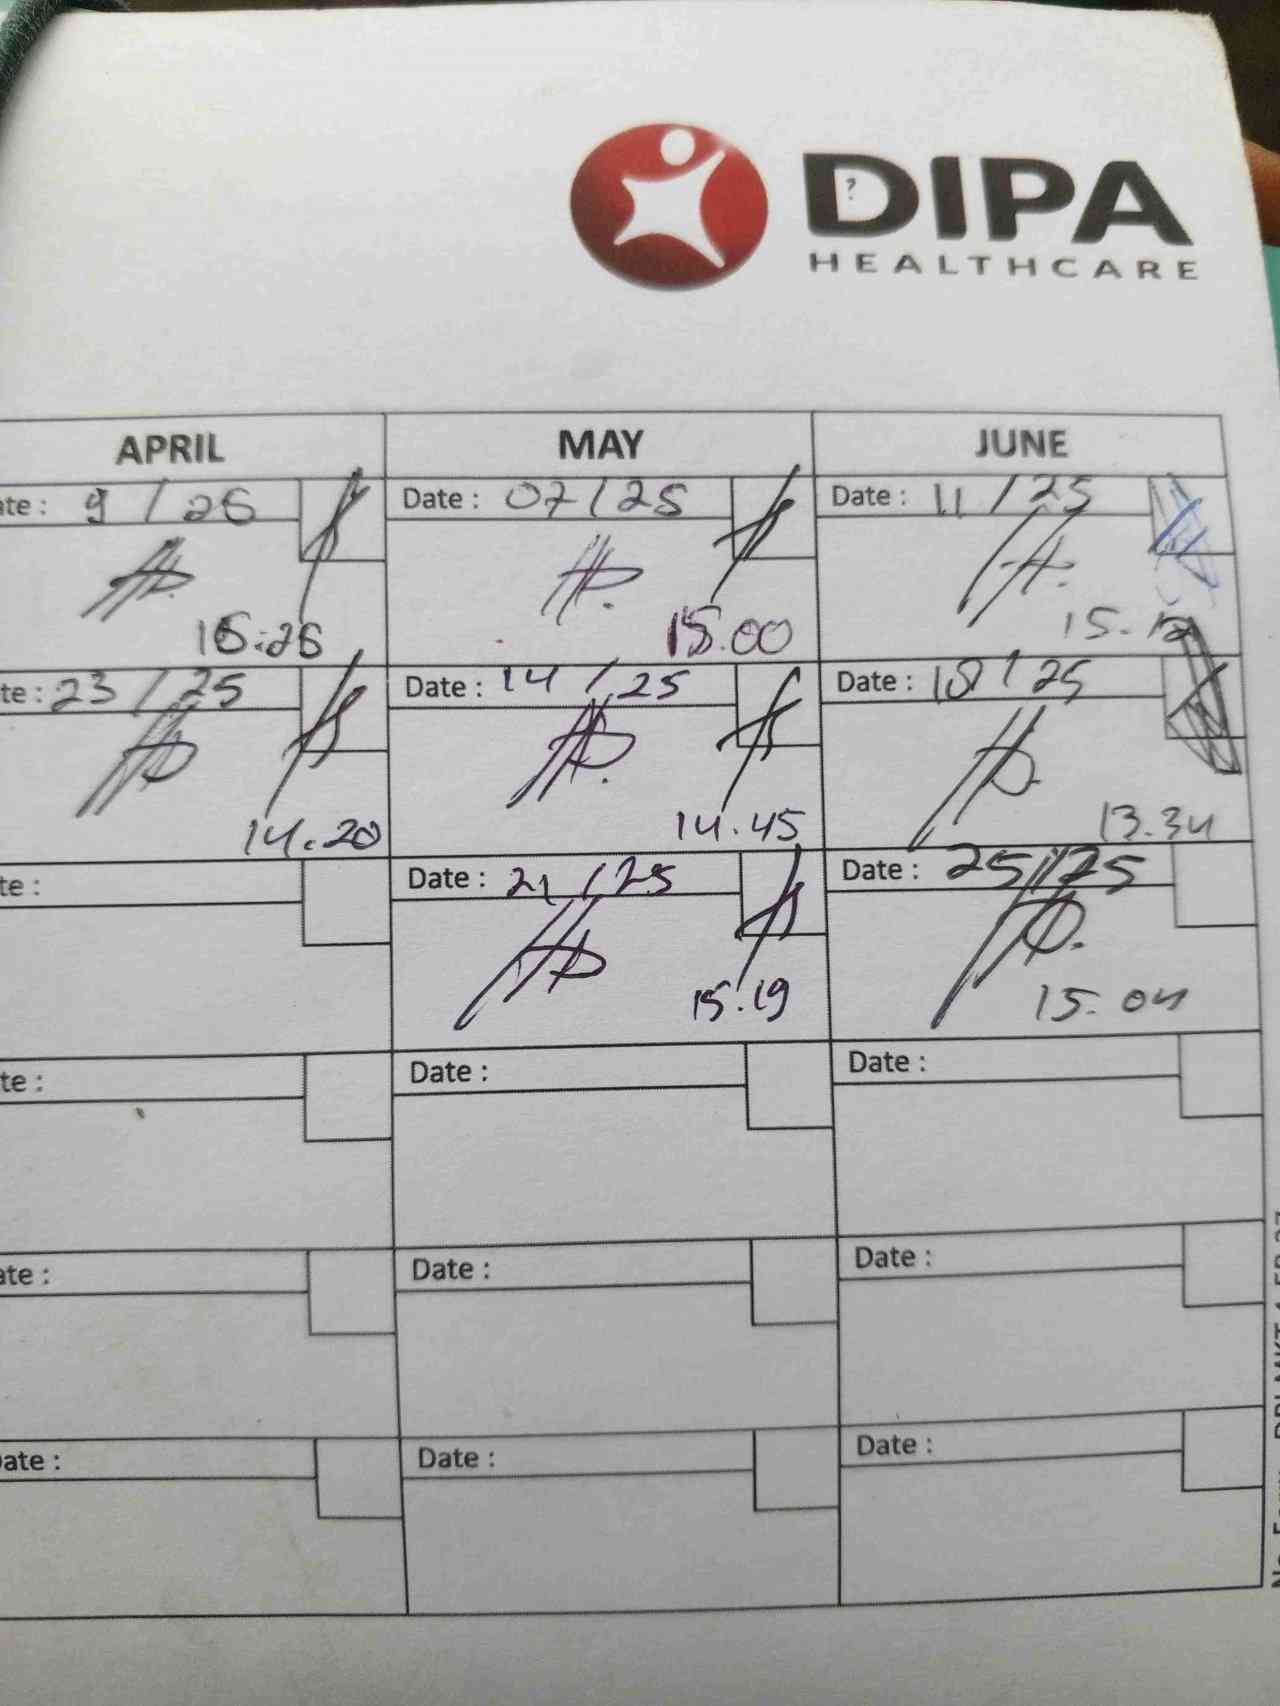 DIPA
HEALTHCARE
APRIL MAY JUNE
ate : 9 / 25 Date : 07 / 25 Date : 11 / 25
15:25 15.00 15.12
te : 23 / 25 Date : 14 / 25 Date : 18 / 25
14.20 14.45 13.34
te : Date : 21 / 25 Date : 25 / 25
15.19 15.04
te : Date : Date :
ate : Date : Date :
Date : Date : Date :